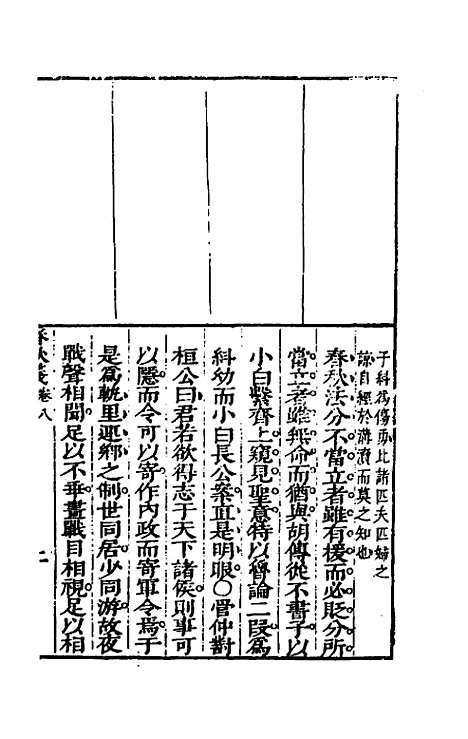 子糾爲傷勇比諸匹夫匹婦之
諒自經於溝瀆而莫之知也
春秋法分不當立者雖有援而必貶分所
當立者雖無命而猶與胡傳從不書子以
小白繫齊上窺見聖意特以魯論二段爲
糾幼而小白長公榖直是明眼○管仲對
桓公曰君若欲得志于天下諸侯則事可
以隱而令可以寄作內政而寄軍令焉于
是爲軌里連鄉之制世同居少同游故夜
戰聲相聞足以不乖晝戰目相視足以相
春秋義 卷八 二